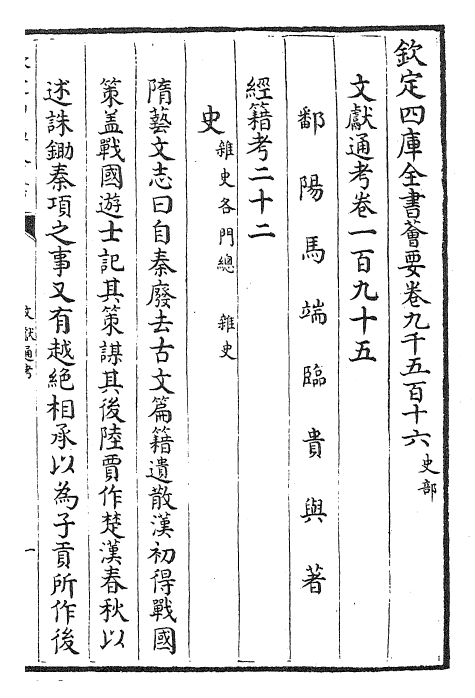 欽定四庫全書薈要卷九千五百十六史部
文獻通考卷一百九十五
鄱陽馬端臨貴與著
經籍考二十二
史雜史各門總 雜史
隋藝文志曰自秦廢去古文篇籍遺散漢初得戰國
策盖戰國遊士記其策謀其後陸賈作楚漢春秋以
述誅鋤秦項之事又有越絶相承以為子貢所作後
文獻通考
一